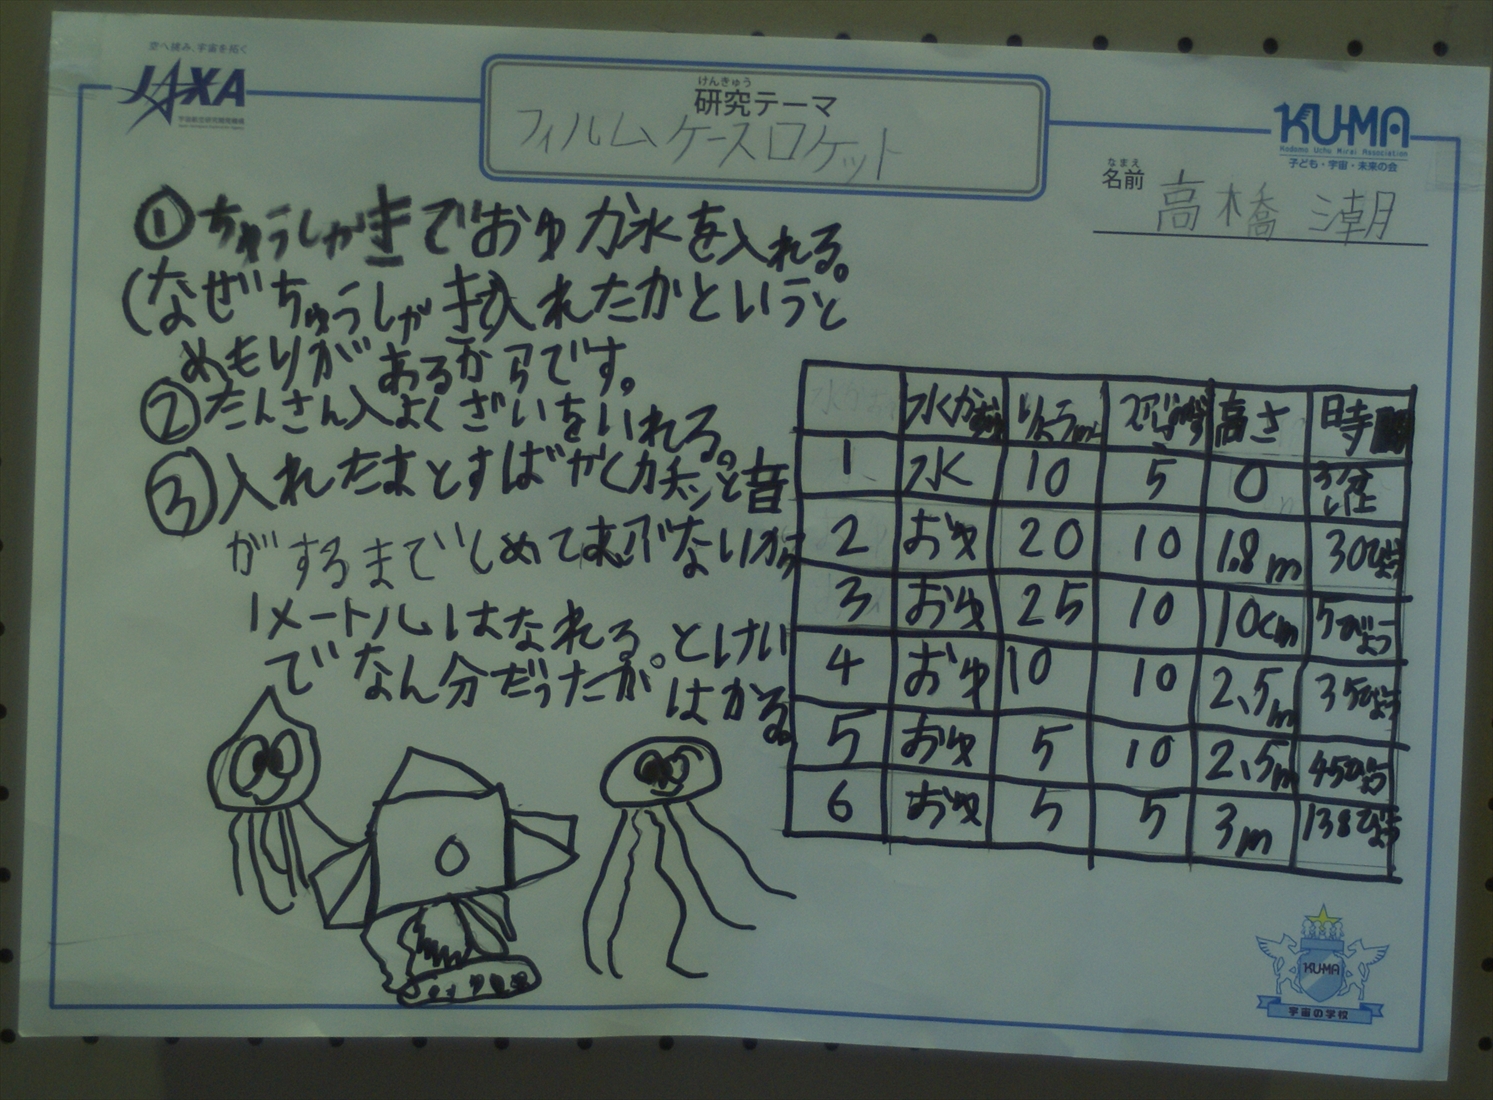 空へ挑み、宇宙を拓く
JAXA
宇宙航空研究開発機構
けんきゅう
研究テーマ
フィルムケースロケット
KU-MA
Kodomo Uchu Mirai Association
子ども・宇宙・未来の会
なまえ
名前 高橋 潮
①ちゅうしゃきでおゆか水を入れる。
(なぜちゅうしゃき入れたかというと
めもりがあるからです。
②たんさん入よくざいをいれる。
③入れたまとすばやくカチンと音
がするまでしめてあぶないから
1メートルはなれる。とけい
でなん分だったか。はかる。
水かおゆ りょうmL 高さ 時間
1 水 10 5 0 3分い上
2 おゆ 20 10 1.8m 30びょう
3 おゆ 25 10 10cm 5びょう
4 おゆ 10 10 2.5m 35びょう
5 おゆ 5 10 2.5m 45びょう
6 おゆ 5 5 3m 138びょう
KU-MA
宇宙の学校